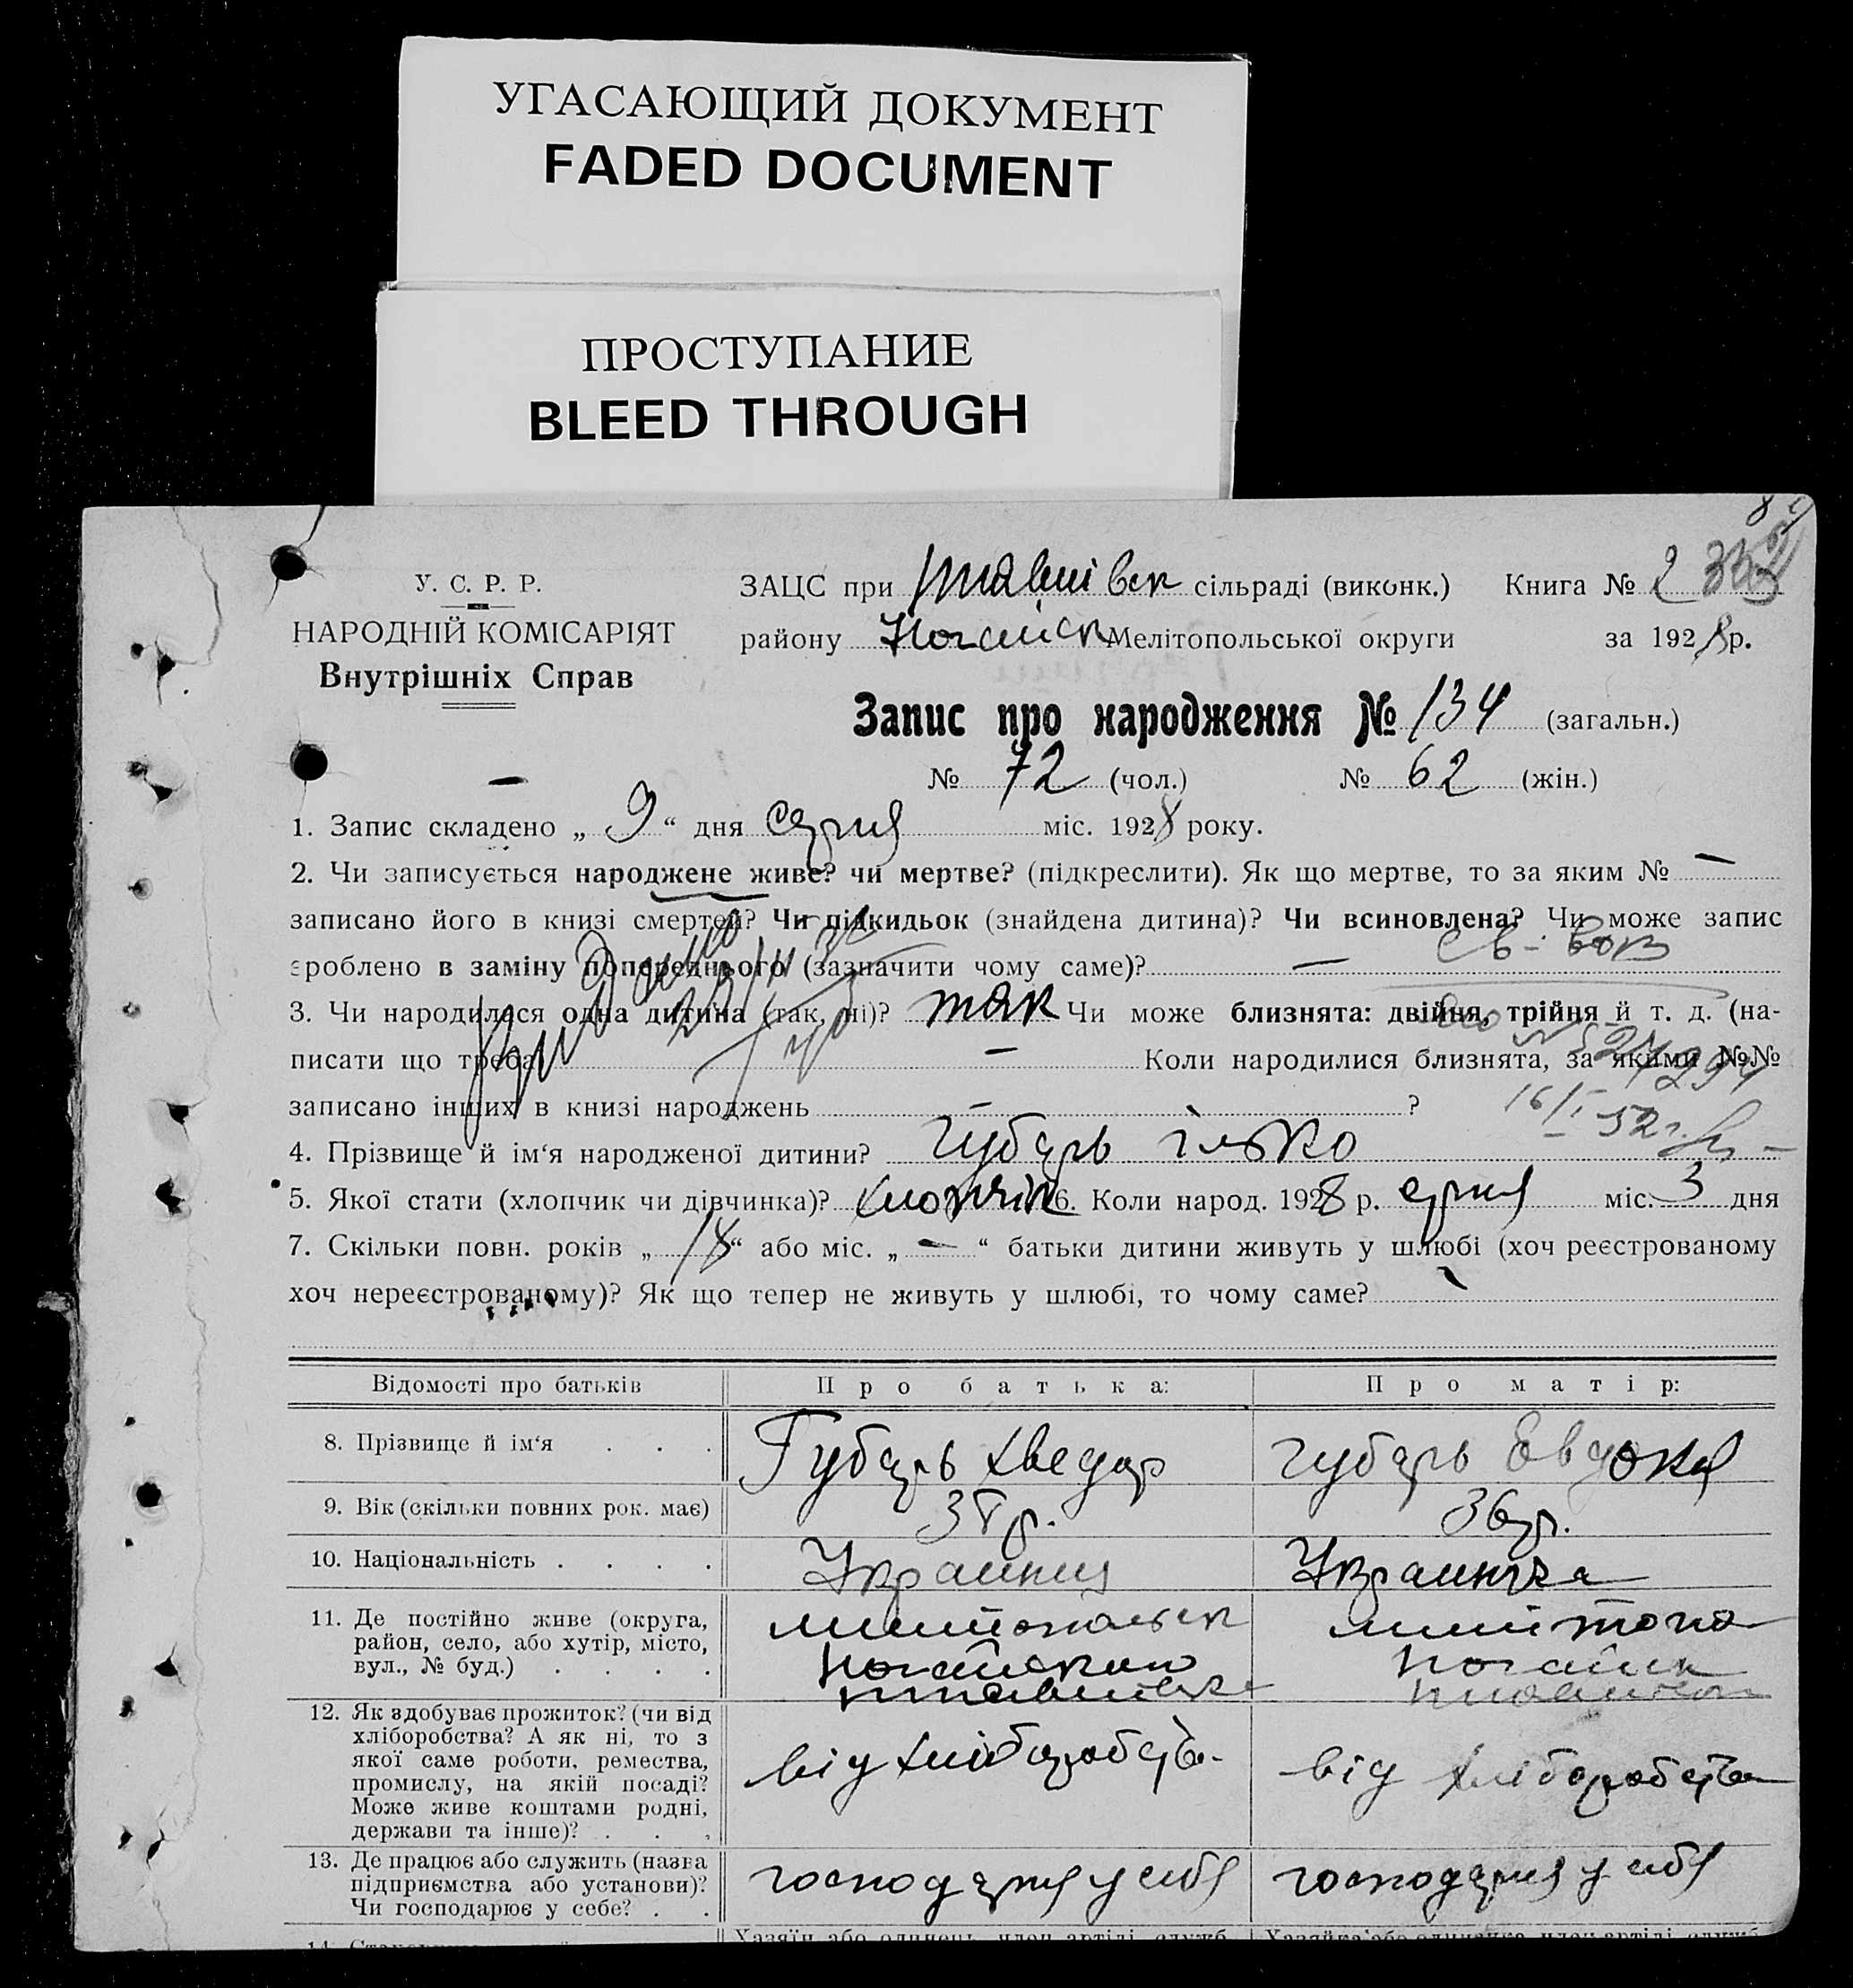 УГАСАЮЩИЙ ДОКУМЕНТ
FADED DOCUMENT
ПРОСТУПАНИЕ
BLEED THROUGH
У. С. Р. Р.
НАРОДНІЙ КОМІСАРІЯТ
Внутрішніх Справ
ЗАЦС при сільраді (виконк.) Книга № 2
району Ногайськ Мелітопольської округи за 1928 р.
Запис про народження № 134 (загальн.)
№ 72 (чол.) № 62 (жін.)
1. Запис складено „ 9 “ дня серпня міс. 1928 року.
2. Чи записується народжене живе? чи мертве? (підкреслити). Як що мертве, то за яким № —
записано його в книзі смертей? Чи підкидьок (знайдена дитина)? Чи всиновлена? Чи може запис
зроблено в заміну попереднього (зазначити чому саме)? —
3. Чи народилася одна дитина (так, ні)? так Чи може близнята: двійня, трійня й т. д. (на-
писати що треба) — Коли народилися близнята, за якими №№
записано інших в книзі народжень — ?
16/I-52г.
4. Прізвище й ім‘я народженої дитини? Губарь Ілько
5. Якої стати (хлопчик чи дівчинка)? хлопчик 6. Коли народ. 1928 р. серпня міс. 3 дня
7. Скільки повн. років „ 18 “ або міс. „ — “ батьки дитини живуть у шлюбі (хоч реєстрованому
хоч нереєстрованому)? Як що тепер не живуть у шлюбі, то чому саме?
Відомості про батьків Про батька: Про матір:
8. Прізвище й ім‘я . . . Губарь Хведор Губарь Евдокя
9. Вік (скільки повних рок. має) 38 р. 36 р.
10. Національність . . . . Украинец Украинка
11. Де постійно живе (округа,
район, село, або хутір, місто,
вул., № буд.) . . . .
12. Як здобуває прожиток? (чи від
хліборобства? А як ні, то з
якої саме роботи, ремества,
промислу, на якій посаді?
Може живе коштами родні,
держави та інше)? . . .
від хліборобства від хліборобства
13. Де працює або служить (назва
підприємства або установи)?
Чи господарює у себе? . .
господаря у себя господаря у себя
Хазяїн або одинець, член артілі, служб. Хазяйка або одиначка, член артілі, служб.